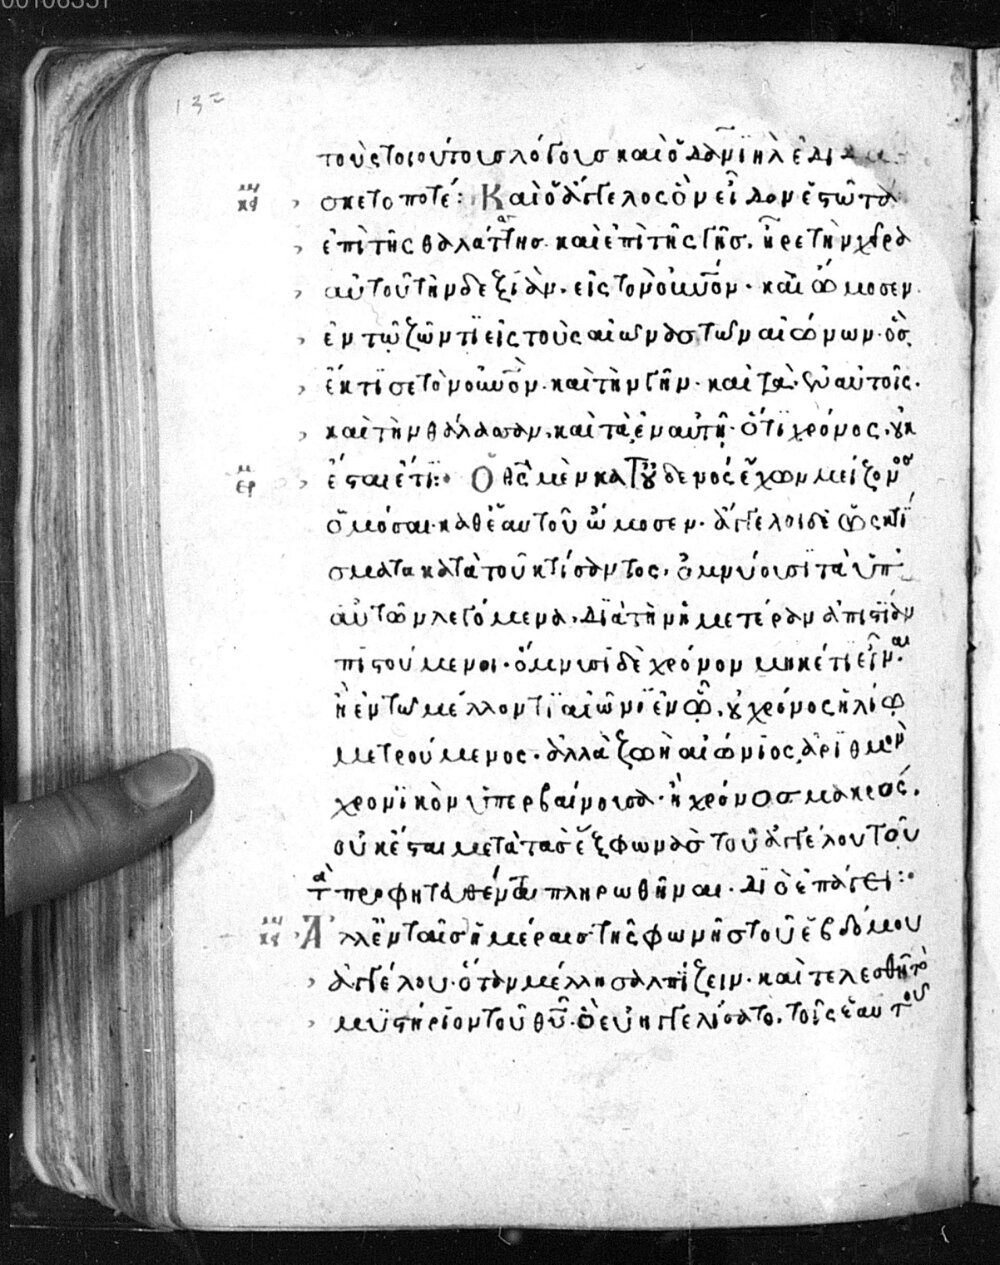 132
τοὺς τοιούτους λόγους καὶ ὁ δανιὴλ ἐδιδα
κει σκετο ποτέ: Καὶ ὁ ἄγγελος ὃν εἶδον ἑστῶτα
ἐπὶ τῆς θαλάττης. καὶ ἐπὶ τῆς γῆς. ἦρε τὴν χεῖρα
αὐτοῦ τὴν δεξιὰν. εἰς τὸν οὐνον. καὶ ὤμοσεν
ἐν τῷ ζῶντι εἰς τοὺς αἰῶνας τῶν αἰώνων. ὃς
ἔκτισε τὸν οὐνον. καὶ τὴν γῆν. καὶ τὰ ἐν αὐτοῖς.
καὶ τὴν θάλασσαν. καὶ τὰ ἐν αὐτῇ. ὅτι χρόνος οὐκ
ερ ἔσται ἔτι: Ὁ θς μὲν κατ οὐδενός ἔχων μείζονος
ὀμόσαι. καθ ἑαυτοῦ ὤμοσεν. ἄγγελοι δὲ ὡς κτί
σματα κατὰ τοῦ κτίσαντος. ὀμνύουσι τὰ ὑπ
αὐτῶν λεγόμενα. διὰ τὴν ἡμετέραν ἀπιστίαν
πιστούμενοι. ὄμνυσι δὲ χρόνον μηκέτι εἶναι.
ἢ ἐν τῷ μέλλοντι αἰῶνι ἐν ᾧ. οὐ χρόνος ἡλίῳ
μετρούμενος. ἀλλὰ ζωὴ αἰώνιος ἀριθμὸν
χρονικὸν ὑπερβαίνουσα. ἢ χρόνος μακρός.
οὐκ ἔσται μετὰ τὰς ἓξ φωνὰς τοῦ ἀγγέλου τοῦ
τὰ προφητευθέντα πληρωθῆναι. διὸ ἐπάγει:
κει Ἀλλ ἐν ταῖς ἡμέραις τῆς φωνῆς τοῦ ἑβδόμου
ἀγγέλου. ὅταν μέλλῃ σαλπίζειν. καὶ τελεσθῇ τὸ
μυστήριον τοῦ θυ. ὃ εὐηγγελίσατο. τοῖς ἑαυτοῦ